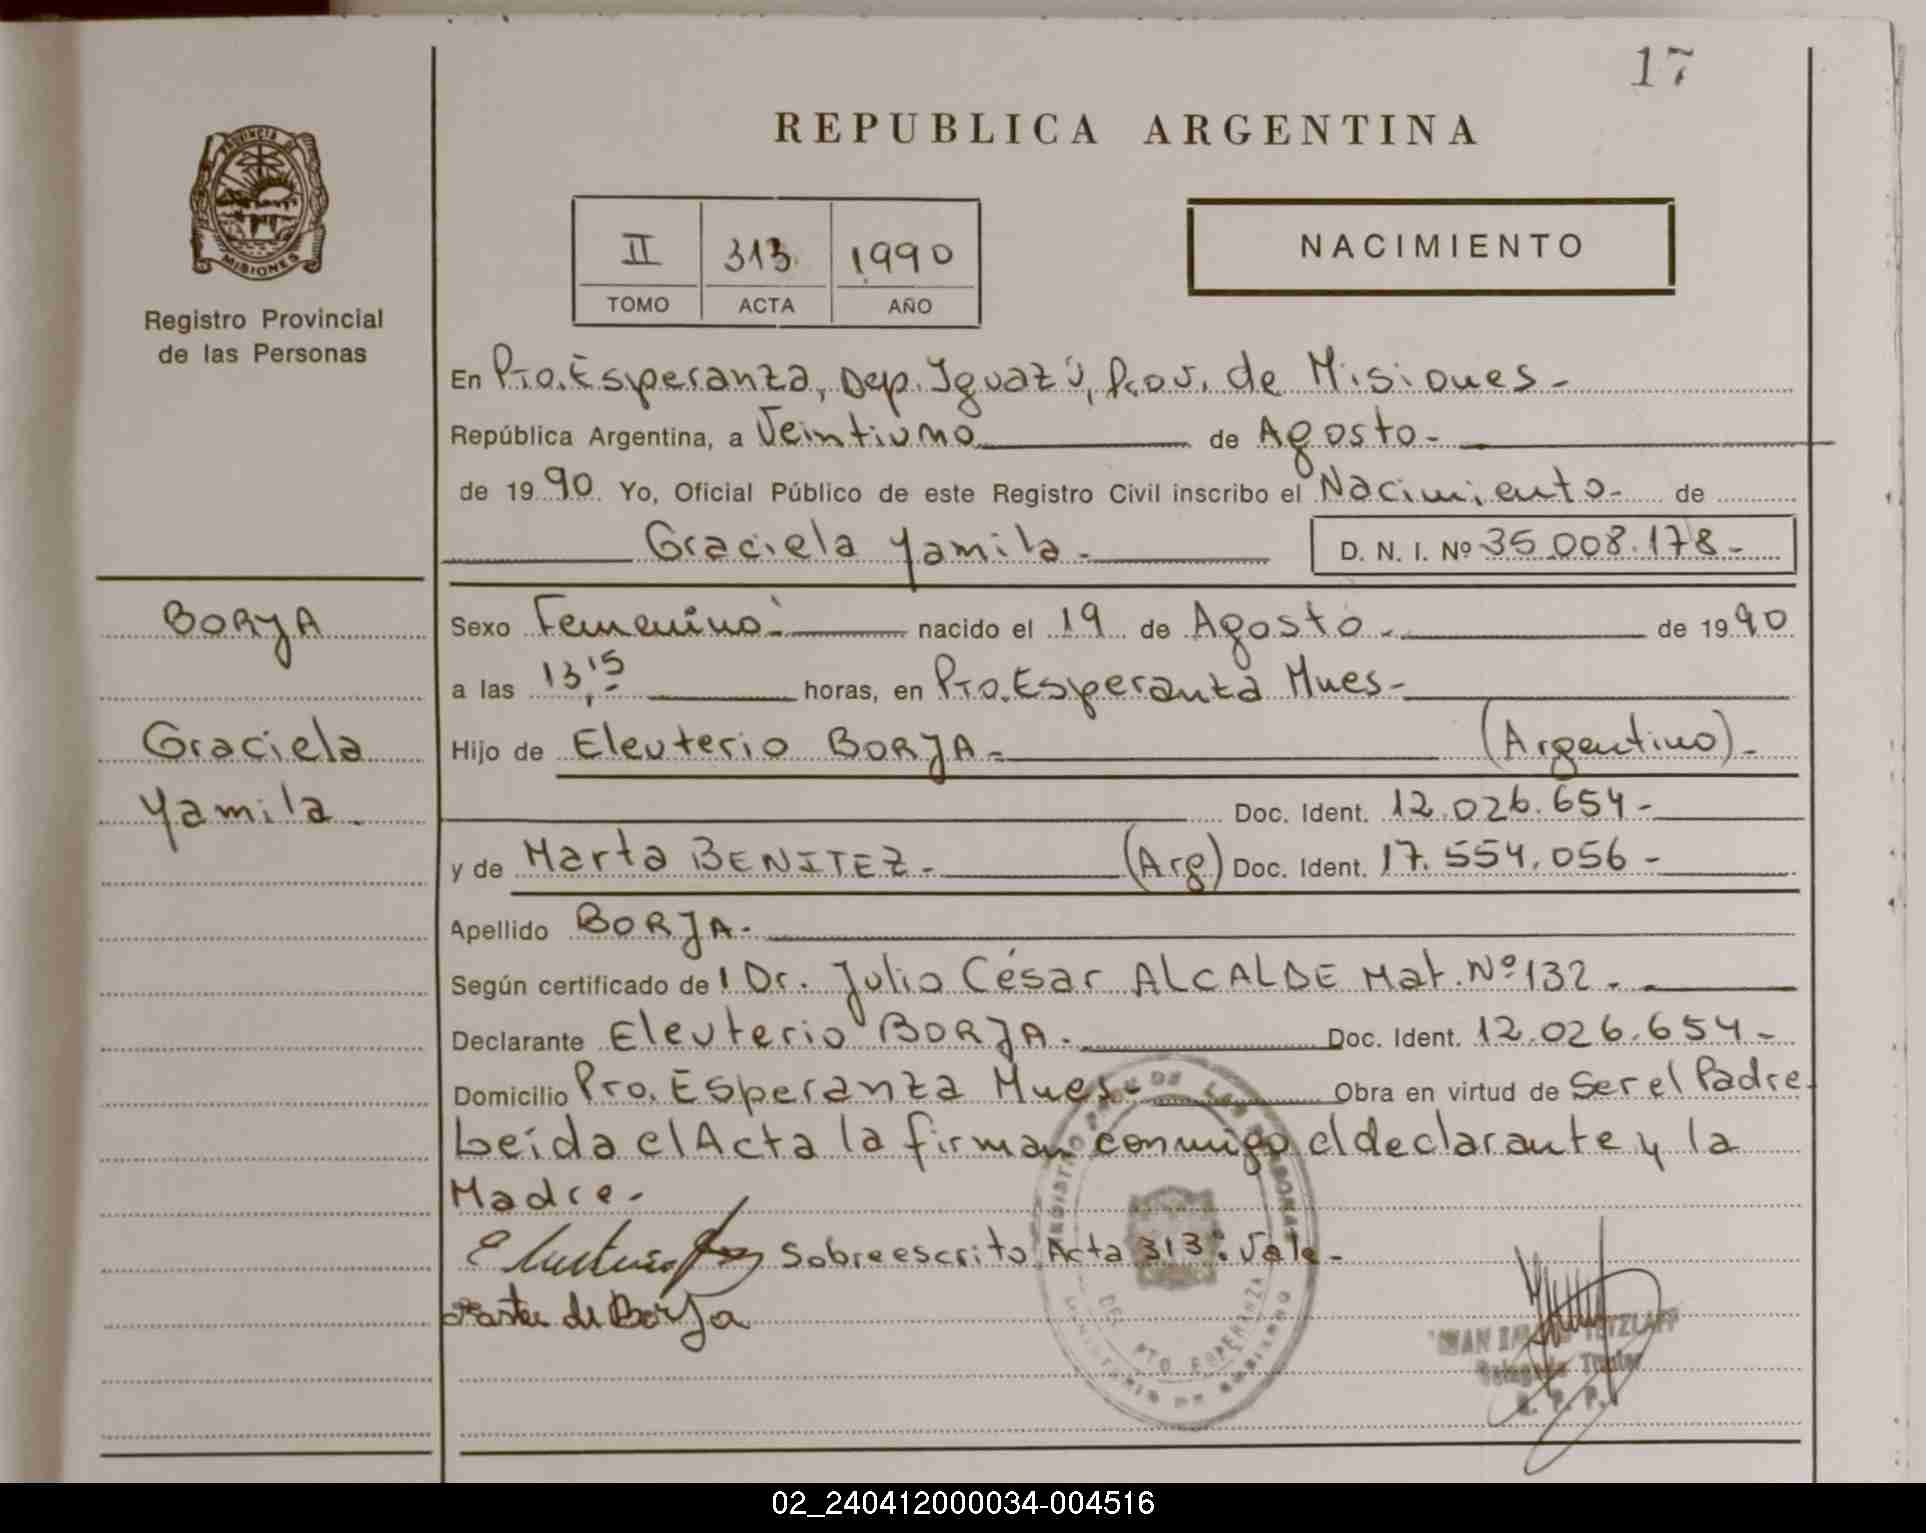 17
REPUBLICA ARGENTINA
PROVINCIA DE
MISIONES
Registro Provincial
de las Personas
II 313 1990
TOMO ACTA AÑO
NACIMIENTO
En Pto. Esperanza, Dep. Iguazú, Prov. de Misiones-
República Argentina, a Veintiuno de Agosto-
de 1990. Yo, Oficial Público de este Registro Civil inscribo el Nacimiento- de
Graciela Yamila- D. N. I. Nº 35.008.178-
BORJA
Graciela
Yamila.
Sexo Femenino- nacido el 19 de Agosto- de 1990
a las 13,15 horas, en Pto. Esperanza Mnes-
Hijo de Eleuterio BORJA- (Argentino)-
Doc. Ident. 12.026.654-
y de Marta BENITEZ- (Arg) Doc. Ident. 17.554.056-
Apellido BORJA-
Según certificado de l Dr. Julio César ALCALDE Mat. Nº 132.-
Declarante Eleuterio BORJA.- Doc. Ident. 12.026.654-
Domicilio Pto. Esperanza Mnes- Obra en virtud de Ser el Padre.
Leída el Acta la firman conmigo el declarante y la
Madre-
Sobreescrito Acta 313: Vale-
de Borja
REGISTRO PROV. DE LAS PERSONAS
PTO. ESPERANZA
MINISTERIO DE GOBIERNO
TETZLAFF
Delegado Titular
R. P. P.
02_240412000034-004516